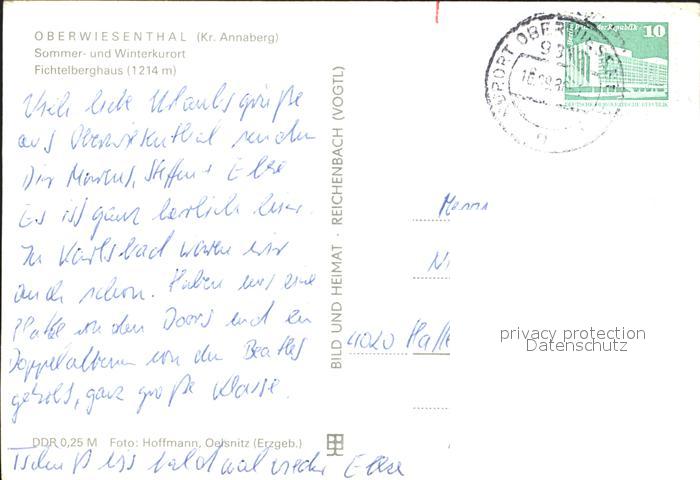 OBERWIESENTHAL (Kr. Annaberg)
Sommer- und Winterkurort
Fichtelberghaus (1214 m)
Viele liebe Urlaubsgrüße
aus Oberwiesenthal senden
Dir Marcus, Steffen + Elke
Es ist ganz herrlich hier.
In Karlsbad waren wir
auch schon. Haben uns eine
Platte von den Doors und ein
Doppelalbum von den Beatles
geholt, ganz große Klasse.
DDR 0,25 M Foto: Hoffmann, Oelsnitz (Erzgeb.)
Tschüß bis bald mal wieder Elke
BILD UND HEIMAT · REICHENBACH (VOGTL)
KURORT OBERWIESENTHAL
10
DEUTSCHE DEMOKRATISCHE REPUBLIK
Herrn
4020 Halle
privacy protection
Datenschutz